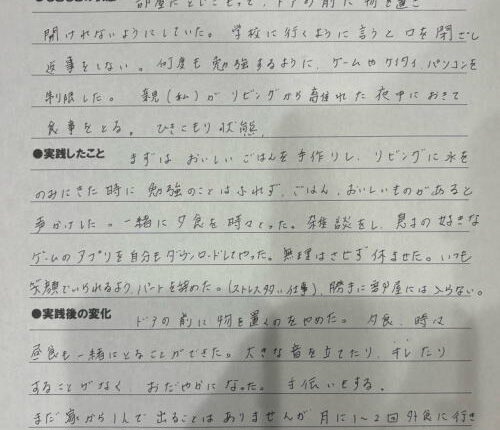 部屋にとじこもって、ドアの前に物を置き
開けれないようにしていた。学校に行くように言うと口を閉ざし
返事をしない。何度も勉強するように、ゲームやケイタイ、パソコンを
制限した。親(私)がリビングから離れた夜中におきて
食事をとる。ひきこもり状態。
●実践したこと まずは おいしいごはんを手作りし、リビングに水を
のみにきた時に勉強のことはふれず、ごはん、おいしいものがあると
声かけした。一緒に夕食を時々とった。雑談をし、息子の好きな
ゲームのアプリを自分もダウンロードしてやった。無理はさせず休ませた。いつも
笑顔でいられるよう、パートを辞めた。(ストレス多い仕事)、勝手に部屋には入らない。
●実践後の変化 ドアの前に物を置くのをやめた。夕食、時は
昼食も一緒にとることができた。大きな音を立てたり、キレたり
することがなく おだやかになった。手伝いをする。
まだ家から1人で出ることはありませんが月に1〜2回外食に行き